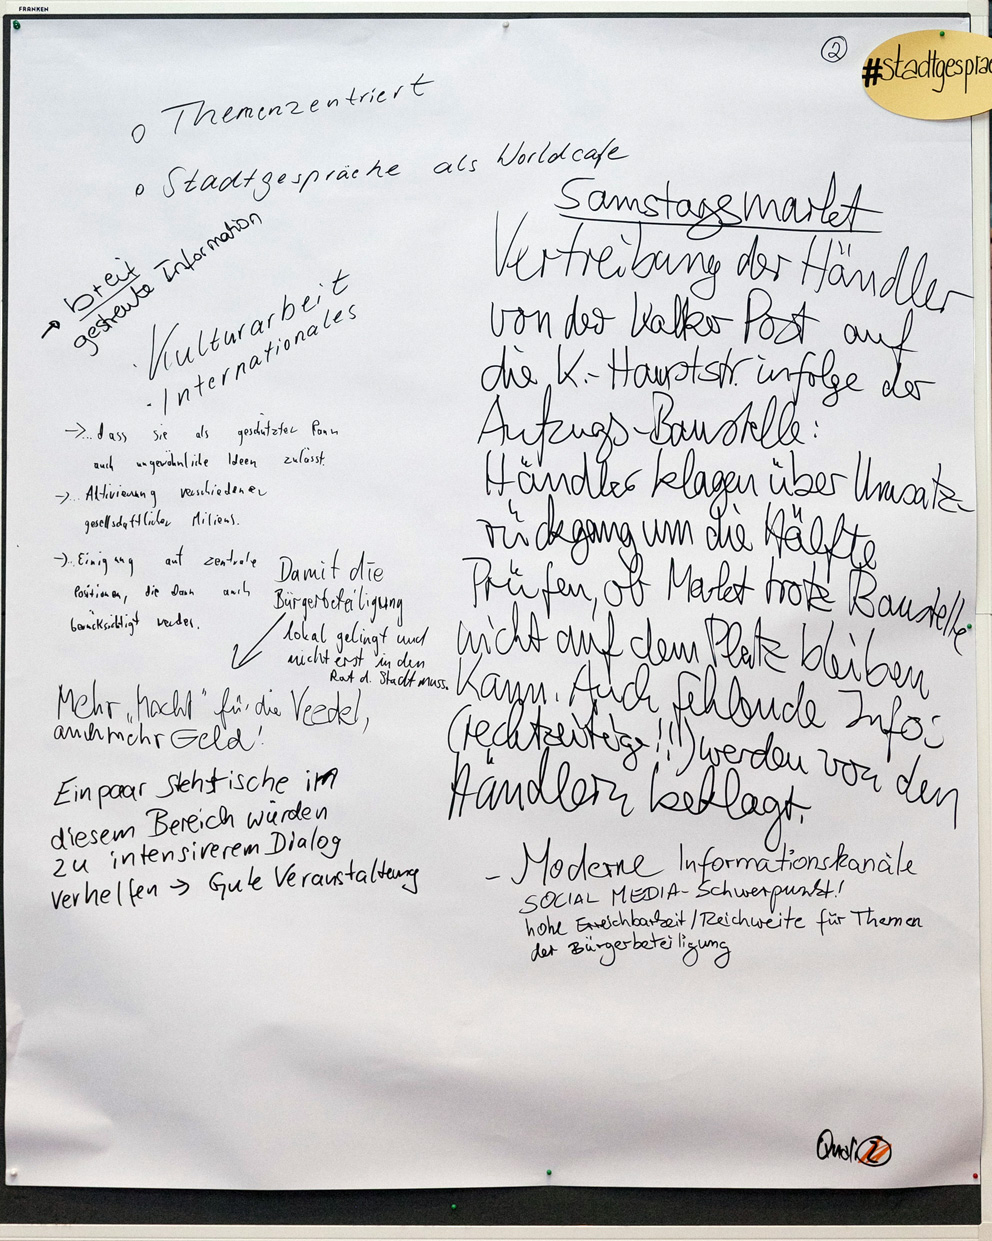 FRANKEN
②
#stadtgespräc
o Themenzentriert
o Stadtgespräche als Worldcafe
→ breit
gestreute Information
· Kulturarbeit
· Internationales
→... dass sie als geschützter Raum
auch ungewöhnliche Ideen zulässt.
→... Aktivierung verschiedener
gesellschaftlicher Milieus.
→... Einigung auf zentrale
Positionen, die dann auch
berücksichtigt werden.
Damit die
Bürgerbeteiligung
lokal gelingt und
nicht erst in den
Rat d. Stadt muss.
Mehr „Macht" für die Veedel,
auch mehr Geld!
Ein paar Stehtische im
diesem Bereich würden
zu intensiverem Dialog
verhelfen → Gute Veranstaltung
Samstagsmarkt
Vertreibung der Händler
von der Kalker Post auf
die K.-Hauptstr. infolge der
Aufzugs-Baustelle:
Händler klagen über Umsatz-
rückgang um die Hälfte
Prüfen, ob Markt trotz Baustelle
nicht auf dem Platz bleiben
kann. Auch fehlende Infos
(rechtzeitige!!!) werden von den
Händlern beklagt.
- Moderne Informationskanäle
SOCIAL MEDIA-Schwerpunkt!
hohe Erreichbarkeit/Reichweite für Themen
der Bürgerbeteiligung
Quali 2